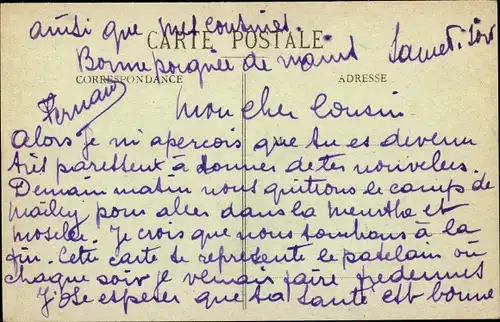 ainsi que mes cousines.
CARTE POSTALE
Bonne poignée de mains Samedi Soir
CORRESPONDANCE ADRESSE
Fernand
Mon cher Cousin
Alors je m'aperçois que tu es devenu
très paresseux à donner de tes nouvelles.
Demain matin nous quittons le camp de
Mailly pour aller dans la Meurthe et
Moselle. Je crois que nous tombons à la
fin. Cette carte te représente le patelain où
chaque soir je venais faire
J'ose espérer que ta santé est bonne